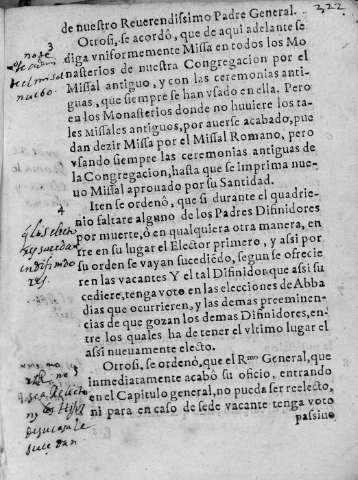 322
de nuestro Reuerendissimo Padre General.
Otrosi, se acordò, que de aqui adelante se
diga vniformemente Missa en todos los Mo
nasterios de nuestra Congregacion por el
Missal antiguo, y con las ceremonias anti-
guas, que siempre se han vsado en ella. Pero
ea los Monasterios donde no huuiere los ta-
les Missales antiguos, por auerse acabado, pue
dan dezir Missa por el Missal Romano, pero
vsando siempre las ceremonias antiguas de
la Congregacion, hasta que se imprima nue-
uo Missal aprouado por su Santidad.
Iten se ordenò, que si durante el quadrie-
nio faltare alguno de los Padres Difinidores
por muerte, ò en qualquiera otra manera, en
tre en su lugar el Elector primero, y assi por
su orden se vayan sucediẽdo, segun se ofrecie
ren las vacantes Y el tal Difinidor que assi su
cediere, tenga voto en las elecciones de Abba
dias que ocurrieren, y las demas preeminen-
cias de que gozan los demas Difinidores, en-
tre los quales ha de tener el vltimo lugar el
assi nueuamente electo.
Otrosi, se ordenò, que el Rmo General, que
inmediatamente acabò su oficio, entrando
en el Capitulo general, no pueda ser reelecto,
ni para en caso de sede vacante tenga voto
passiuo
3
no se
nuebo
4